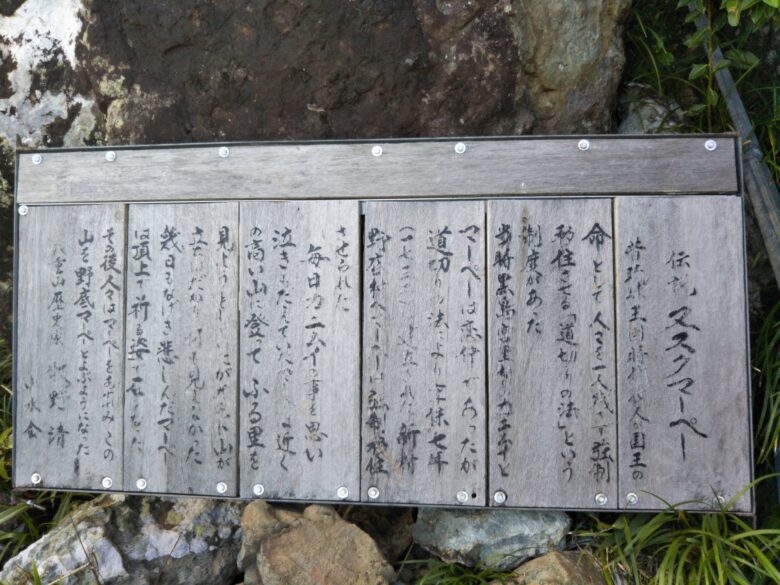 伝説 ヌスクマーペー
昔琉球王国時代 役人が国王の
命として人々を一人残らず強制
移住させる「道切りの法」という
制度があった
当時黒島宮里村カニムイと
マーペーは恋仲であったが
道切りの法により享保七年
(一七三二) 建立された新村
野底村へマーペーは強制移住
させられた
毎日カニムイの事を思い
泣きもだえていたマーペーは近く
の高い山に登って ふる里を
見ようとした が 山が
さえぎり 何も見えなかった
幾日もなげき悲しんだマーペー
は頂上で祈る姿で石になった
その後人々はマーペーをあわれみこの
山を野底マーペーとよぶようになった
八重山歴史家 牧野清
山水会